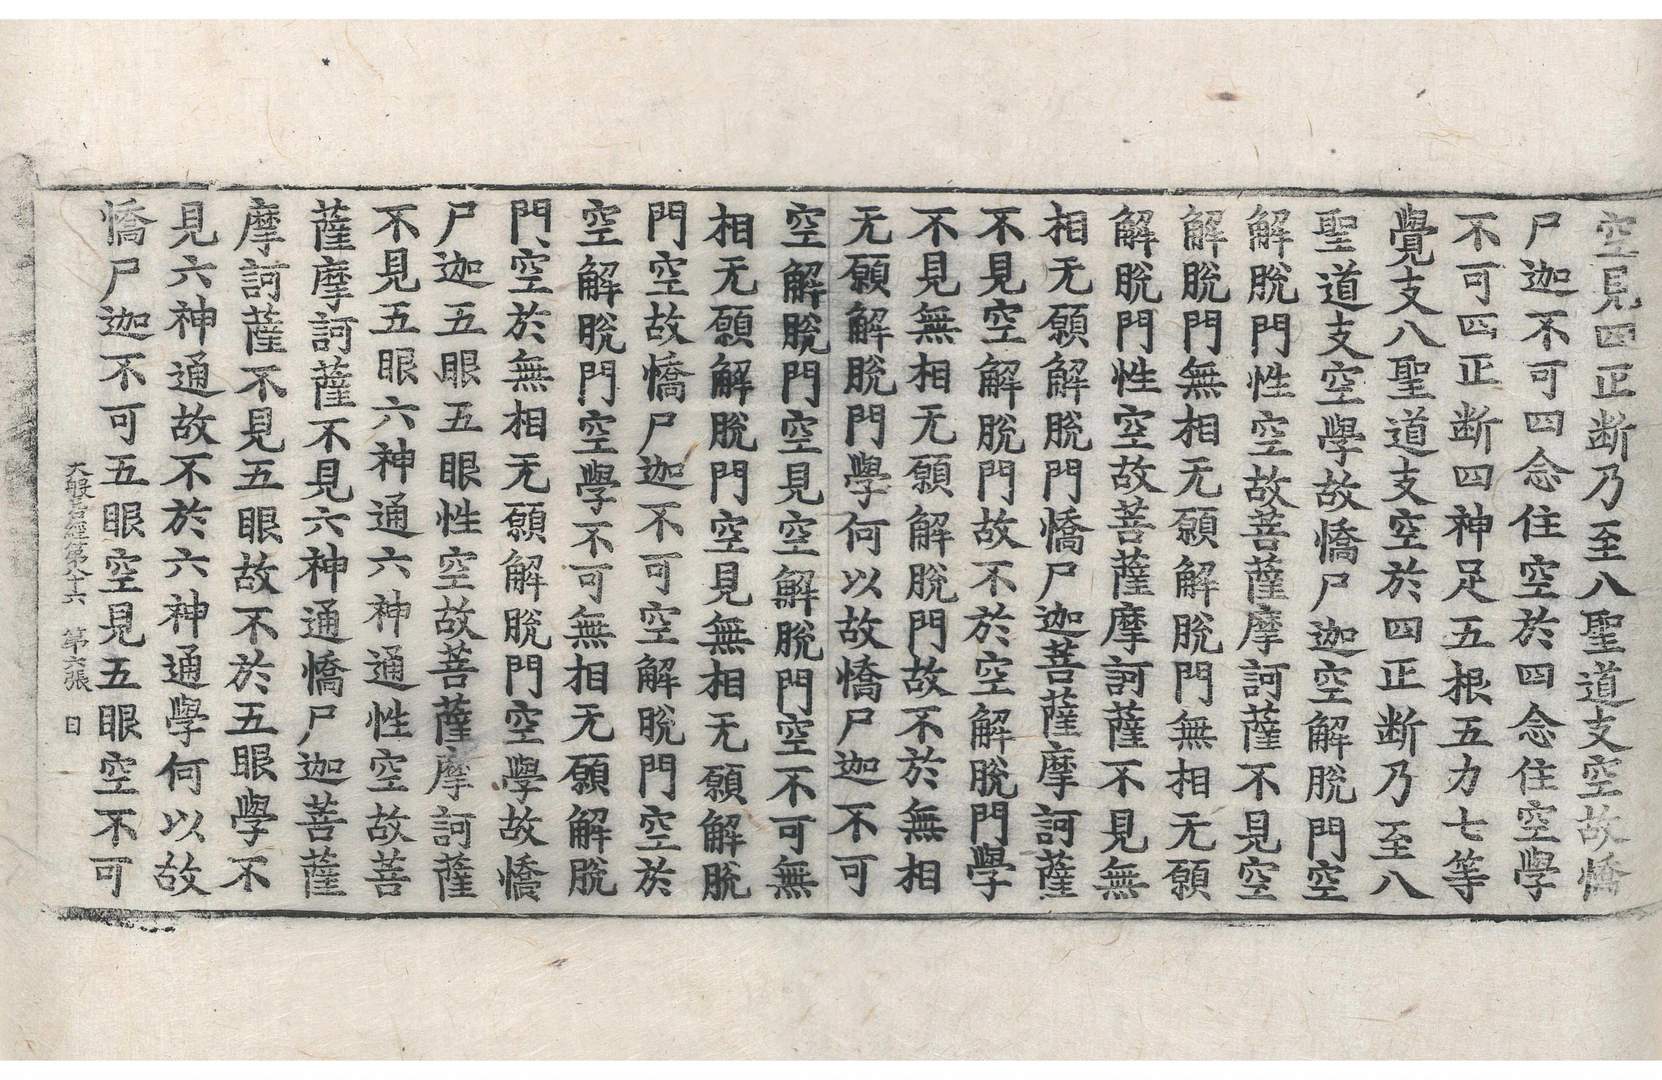 空見四正断乃至八聖道支空故憍
尸迦不可四念住空於四念住空學
不可四正断四神足五根五力七等
覺支八聖道支空於四正断乃至八
聖道支空學故憍尸迦空解脫門空
解脫門性空故菩薩摩訶薩不見空
解脫門無相无願解脫門無相无願
解脫門性空故菩薩摩訶薩不見無
相无願解脫門憍尸迦菩薩摩訶薩
不見空解脫門故不於空解脫門學
不見無相无願解脫門故不於無相
无願解脫門學何以故憍尸迦不可
空解脫門空見空解脫門空不可無
相无願解脫門空見無相无願解脫
門空故憍尸迦不可空解脫門空於
空解脫門空學不可無相无願解脫
門空於無相无願解脫門空學故憍
尸迦五眼五眼性空故菩薩摩訶薩
不見五眼六神通六神通性空故菩
薩摩訶薩不見六神通憍尸迦菩薩
摩訶薩不見五眼故不於五眼學不
見六神通故不於六神通學何以故
憍尸迦不可五眼空見五眼空不可
大般若經第八十六 第六張 日